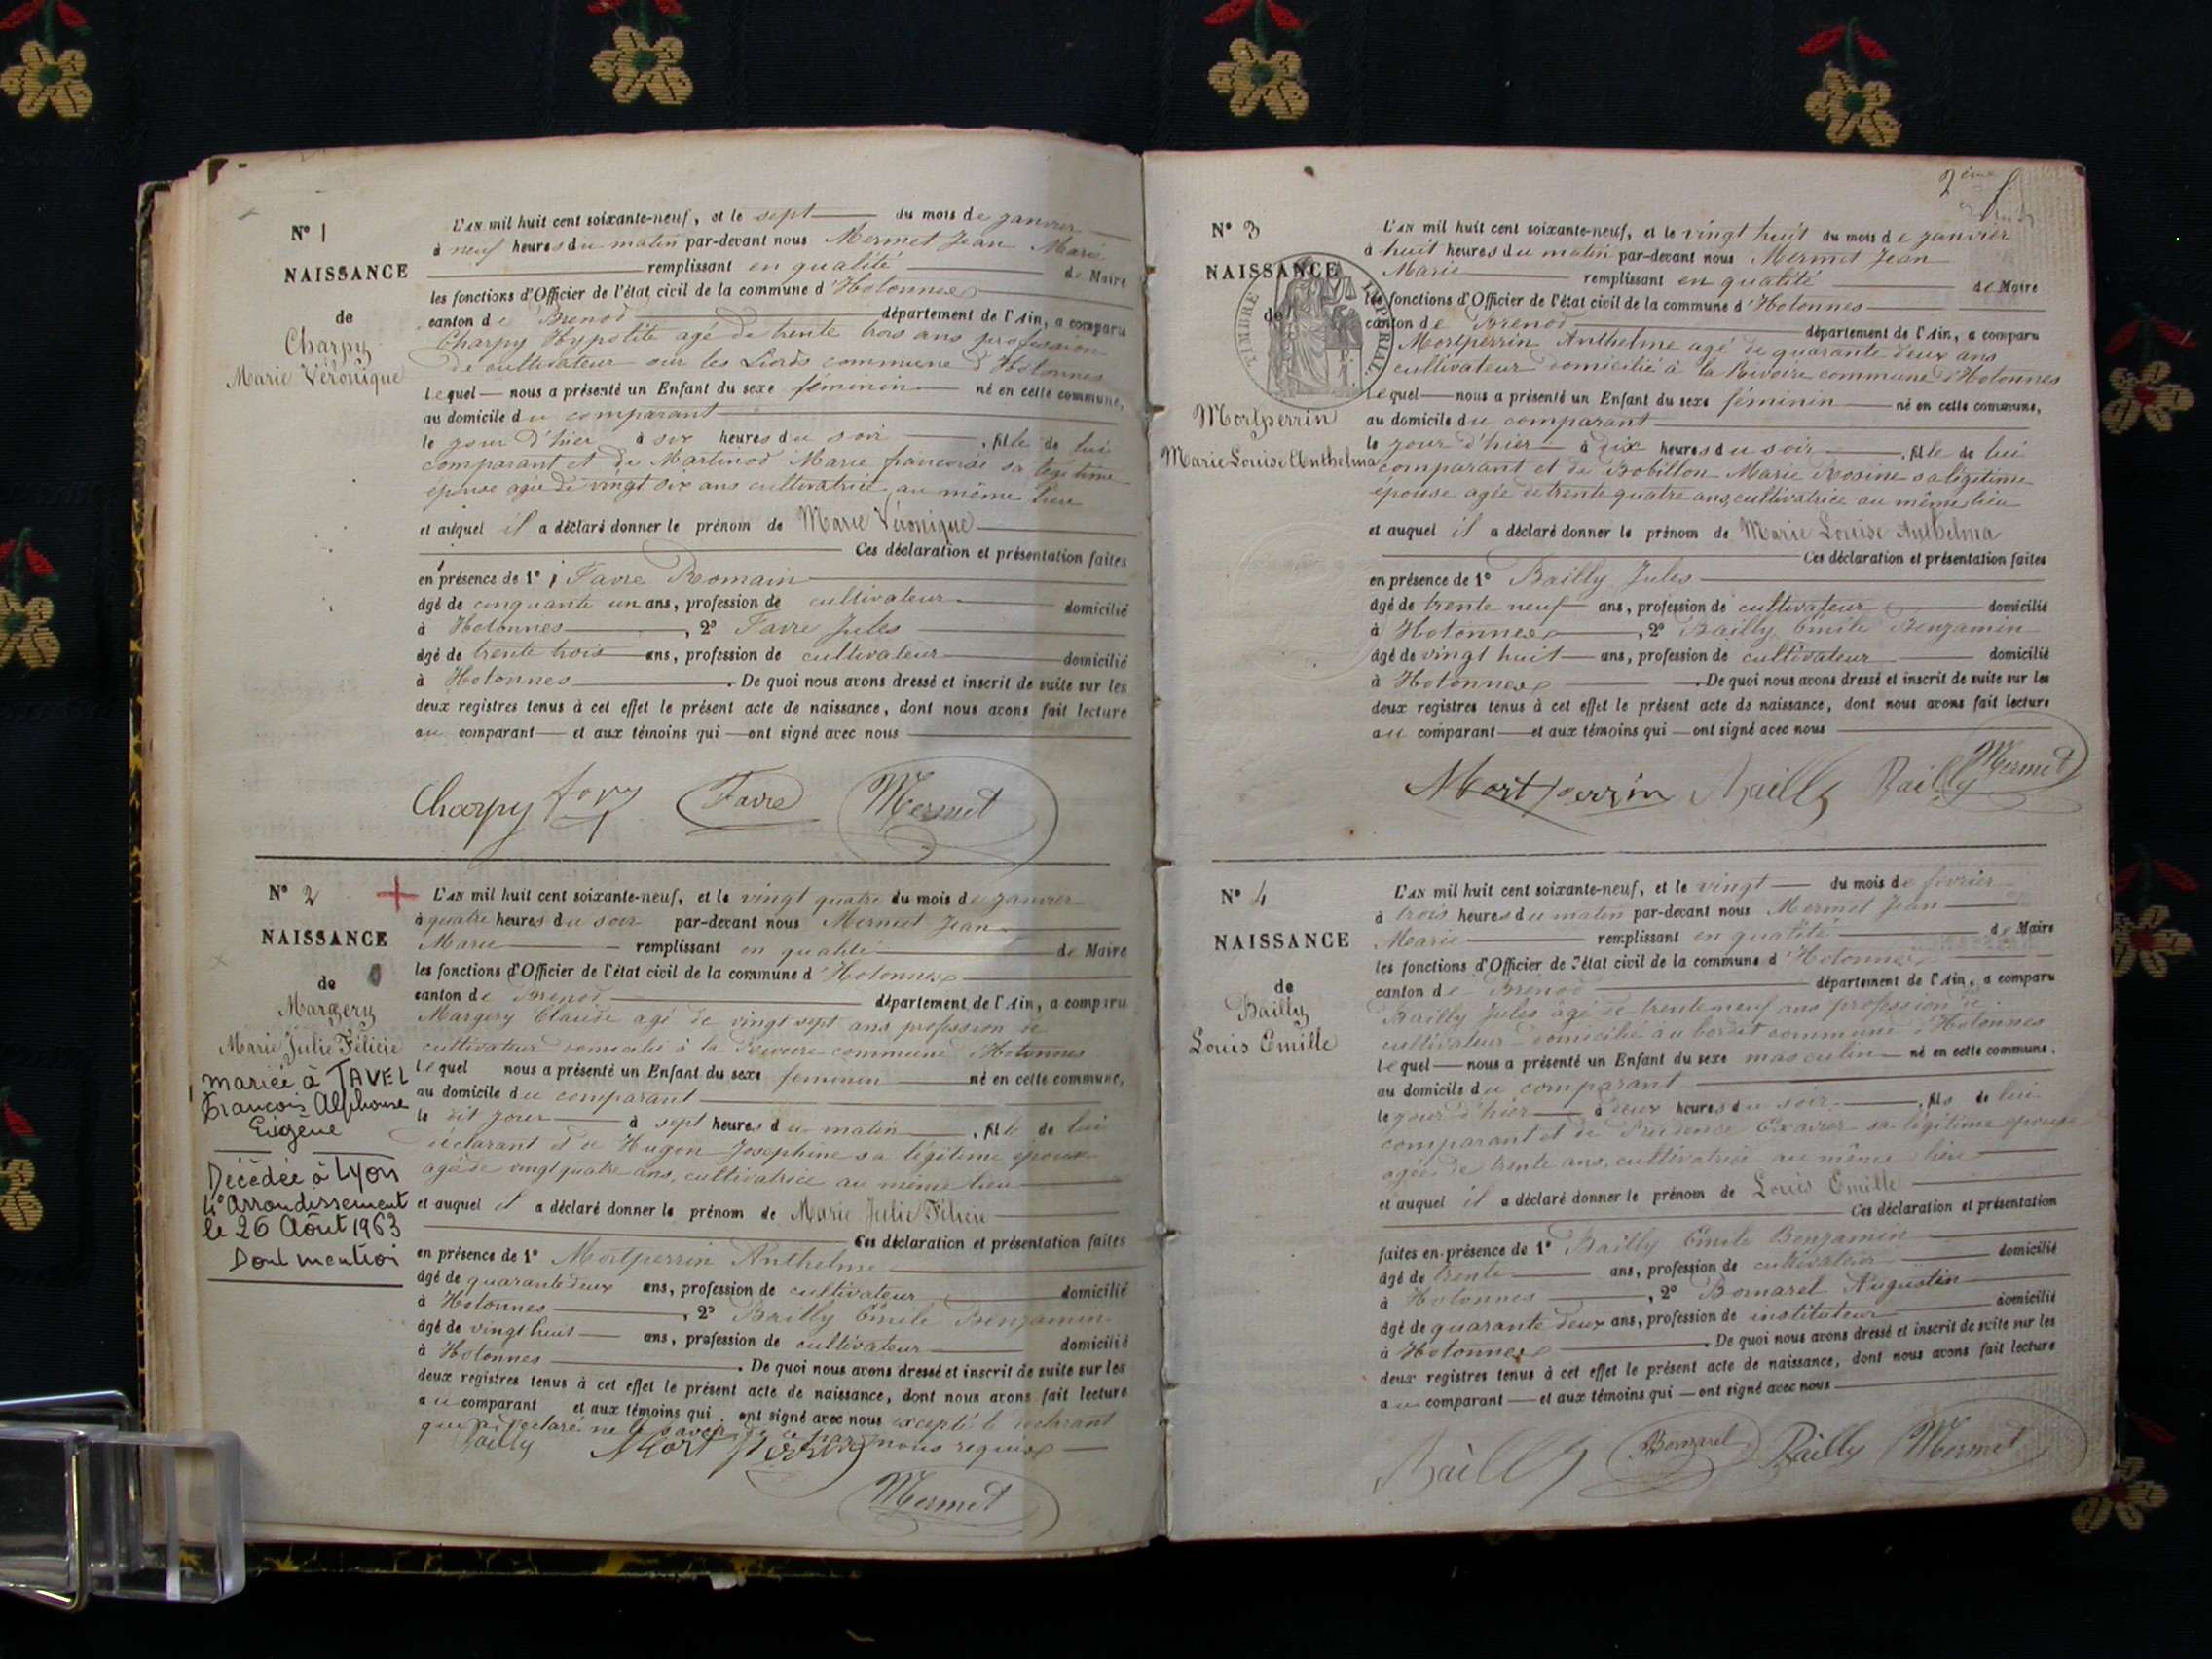 N° 1
NAISSANCE
de
Charpy
Marie Véronique
L'AN mil huit cent soixante-neuf, et le sept du mois de janvier
à neuf heures du matin par-devant nous Mermet Jean Marie
remplissant en qualité de Maire
les fonctions d'Officier de l'état civil de la commune d'Hotonnes
canton de Brenod département de l'Ain, a comparu
Charpy Hypolite agé de trente trois ans profession
de cultivateur sur les Liords commune d'Hotonnes
lequel nous a présenté un Enfant du sexe féminin né en cette commune,
au domicile du comparant
le jour d'hier à six heures du soir, fille de lui
comparant et de Martinod Marie françoise sa légitime
épouse agée de vingt six ans cultivatrice au même lieu
et auquel il a déclaré donner le prénom de Marie Véronique
Ces déclaration et présentation faites
en présence de 1° Favre Romain
âgé de cinquante un ans, profession de cultivateur domicilié
à Hotonnes, 2° Favre Jules
âgé de trente trois ans, profession de cultivateur domicilié
à Hotonnes. De quoi nous avons dressé et inscrit de suite sur les
deux registres tenus à cet effet le présent acte de naissance, dont nous avons fait lecture
au comparant et aux témoins qui ont signé avec nous
Charpy Favre Mermet
N° 2
NAISSANCE
de
Margery
Marie Julie Félicie
mariée à TAVEL
François Alphonse
Eugène
Décédée à Lyon
4° Arrondissement
le 26 Août 1963
Dont mention
L'AN mil huit cent soixante-neuf, et le vingt quatre du mois de janvier
à quatre heures du soir par-devant nous Mermet Jean
Marie remplissant en qualité de Maire
les fonctions d'Officier de l'état civil de la commune d'Hotonnes
canton de Brenod département de l'Ain, a comparu
Margery Claude agé de vingt sept ans profession de
cultivateur domicilié à la Rivoire commune d'Hotonnes
lequel nous a présenté un Enfant du sexe féminin né en cette commune,
au domicile du comparant
le dit jour à sept heures du matin, fille de lui
déclarant et de Hugon Josephine sa légitime épouse
agée de vingt quatre ans, cultivatrice au même lieu
et auquel il a déclaré donner le prénom de Marie Julie Félicie
Ces déclaration et présentation faites
en présence de 1° Mortperrin Anthelme
âgé de quarante deux ans, profession de cultivateur domicilié
à Hotonnes, 2° Bailly Émile Benjamin
âgé de vingt huit ans, profession de cultivateur domicilié
à Hotonnes. De quoi nous avons dressé et inscrit de suite sur les
deux registres tenus à cet effet le présent acte de naissance, dont nous avons fait lecture
au comparant et aux témoins qui ont signé avec nous excepté le déclarant
qui a déclaré ne le savoir de ce par nous requis
Bailly Mortperrin
Mermet
2ème
N° 3
NAISSANCE
de
TIMBRE IMPERIAL
Mortperrin
Marie Louise Anthelma
L'AN mil huit cent soixante-neuf, et le vingt huit du mois de janvier
à huit heures du matin par-devant nous Mermet Jean
Marie remplissant en qualité de Maire
les fonctions d'Officier de l'état civil de la commune d'Hotonnes
canton de Brenod département de l'Ain, a comparu
Mortperrin Anthelme agé de quarante deux ans
cultivateur domicilié à la Rivoire commune d'Hotonnes
lequel nous a présenté un Enfant du sexe féminin né en cette commune,
au domicile du comparant
le jour d'hier à dix heures du soir, fille de lui
comparant et de Bobillon Marie Rosine sa légitime
épouse agée de trente quatre ans, cultivatrice au même lieu
et auquel il a déclaré donner le prénom de Marie Louise Anthelma
Ces déclaration et présentation faites
en présence de 1° Bailly Jules
âgé de trente neuf ans, profession de cultivateur domicilié
à Hotonnes, 2° Bailly Émile Benjamin
âgé de vingt huit ans, profession de cultivateur domicilié
à Hotonnes. De quoi nous avons dressé et inscrit de suite sur les
deux registres tenus à cet effet le présent acte de naissance, dont nous avons fait lecture
au comparant et aux témoins qui ont signé avec nous
Mortperrin Bailly Bailly Mermet
N° 4
NAISSANCE
de
Bailly
Louis Emille
L'AN mil huit cent soixante-neuf, et le vingt du mois de février
à trois heures du matin par-devant nous Mermet Jean
Marie remplissant en qualité de Maire
les fonctions d'Officier de l'état civil de la commune d'Hotonnes
canton de Brenod département de l'Ain, a comparu
Bailly Jules agé de trente neuf ans profession de
cultivateur domicilié au bordet commune d'Hotonnes
lequel nous a présenté un Enfant du sexe masculin né en cette commune,
au domicile du comparant
le jour d'hier à deux heures du soir, fils de lui
comparant et de Prudence Exavier sa légitime épouse
agée de trente ans, cultivatrice au même lieu
et auquel il a déclaré donner le prénom de Louis Emille
Ces déclaration et présentation
faites en présence de 1° Bailly Émile Benjamin
âgé de trente ans, profession de cultivateur domicilié
à Hotonnes, 2° Bomarel Augustin
âgé de quarante deux ans, profession de instituteur domicilié
à Hotonnes. De quoi nous avons dressé et inscrit de suite sur les
deux registres tenus à cet effet le présent acte de naissance, dont nous avons fait lecture
au comparant et aux témoins qui ont signé avec nous
Bailly Bomarel Bailly Mermet